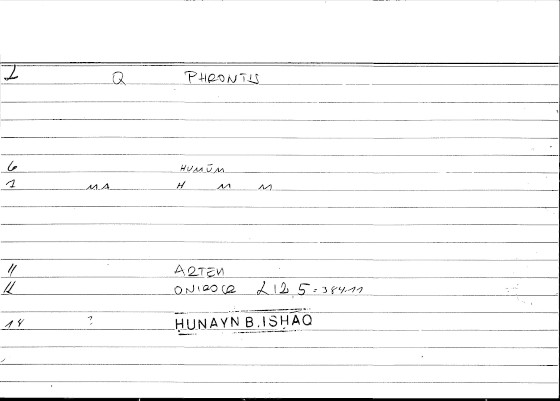 1 Q PHRONTIS
6 HUMŪM
7 MA H M M
11 ARTEM
12 ONIROCR LIB 5 = 384.11
14 ? HUNAYN B. ISHAQ